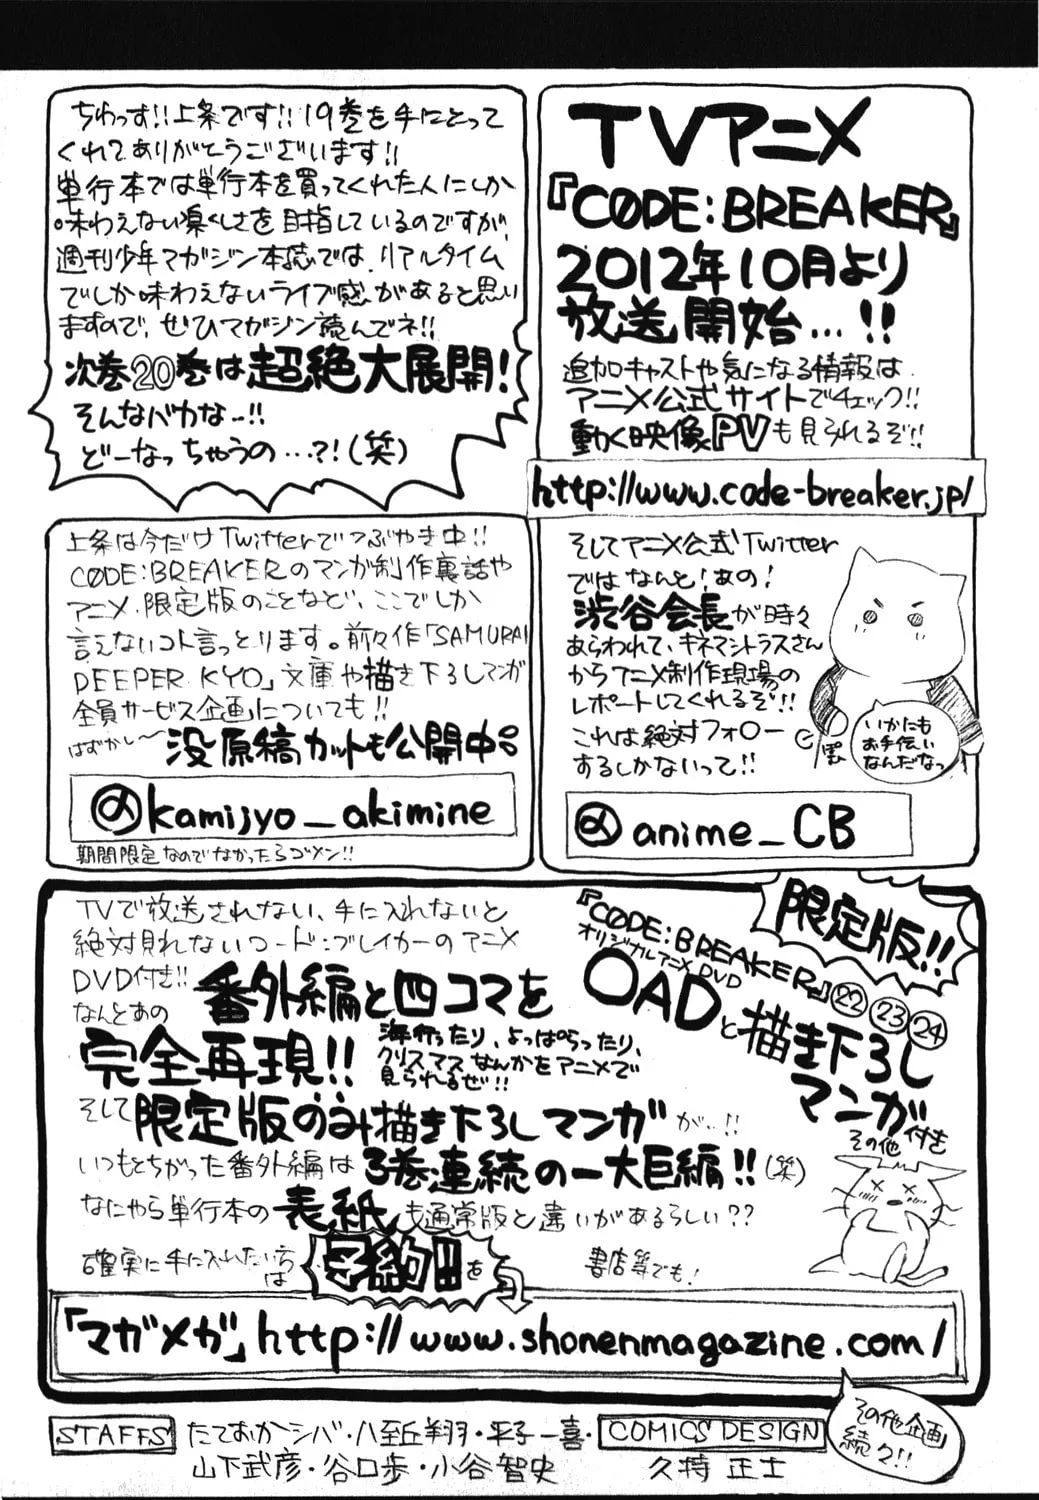 ちわっす!!上条です!!19巻を手にとって
くれてありがとうございます!!
単行本では単行本を買ってくれた人にしか
味わえない楽しさを目指しているのですが、
週刊少年マガジン本誌では、リアルタイム
でしか味わえないライブ感があると思い
ますので、ぜひマガジン読んでネ!!
次巻20巻は超絶大展開!
そんなバカな…!!
どーなっちゃうの…?!(笑)
TVアニメ
『CØDE:BREAKER』
2012年10月より
放送開始…!!
追加キャストや気になる情報は
アニメ公式サイトでチェック!!
動く映像PVも見られるぞ!!
http://www.code-breaker.jp/
上条は今だけTwitterでつぶやき中!!
CØDE:BREAKERのマンガ制作裏話や
アニメ、限定版のことなど、ここでしか
言えないコト言っとります。前々作「SAMURAI
DEEPER KYO」文庫や描き下ろしマンガ
全員サービス企画についても!!
はずかし〜
没原稿カットも公開中。
@kamijyo_akimine
期間限定なのでなかったらゴメン!!
そしてアニメ公式Twitter
ではなんと!あの!
渋谷会長が時々
あらわれて、キネマシトラスさん
からアニメ制作現場の
レポートしてくれるぞ!!
これは絶対フォロー
するしかないって!!
ぽひ
いかにも
お手伝い
なんだなっ
@anime_CB
TVで放送されない、手に入れないと
絶対見れないコード:ブレイカーのアニメ
DVD付き!!
なんとあの
番外編と四コマを
完全再現!!
海行ったり、よっぱらったり、
クリスマスなんかをアニメで
見られるぜ!!
そして限定版のみ描き下ろしマンガが…!!
いつもとちがった番外編は3巻連続の一大巨編!!(笑)
なにやら単行本の表紙も通常版と違いがあるらしい??
確実に手に入れたい方
は
予約!!を
書店等でも!
限定版!!
『CØDE:BREAKER』22 23 24
オリジナルアニメDVD
OADと描き下ろし
マンガ付き
その他
「マガメガ」http://www.shonenmagazine.com/
その他企画
続々!!
STAFFS
たておかシバ・八至丘翔・平子一喜・
山下武彦・谷口歩・小谷智史
COMICS DESIGN
久持正士